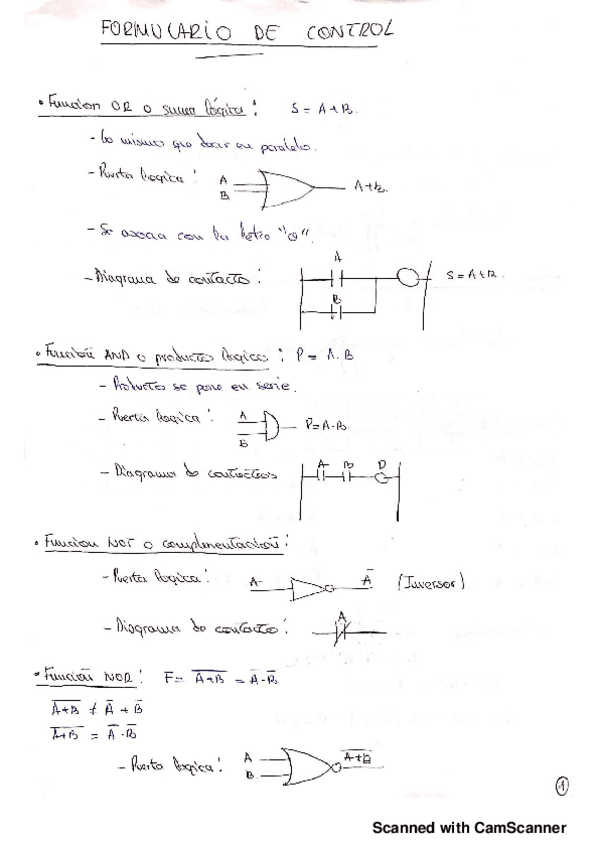 FORMULARIO DE CONTROL
• Funcion OR o suma lógica: S = A+B.
- Lo mismo que decir en paralelo.
- Puerta logica: A B A+B.
- Se asocia con la letra "O".
- Diagrama de contacto: A B S = A+B.
• Función AND o producto logico: P = A.B
- Producto se pone en serie.
- Puerta logica: A B P=A·B.
- Diagrama de contactos A B D
• Funcion NOT o complementación:
- Puerta logica: A A̅ (Inversor)
- Diagrama de contacto: A
• Función NOR: F= \overline{A+B} = A̅·B̅
\overline{A+B} ≠ A̅ + B̅
\overline{A+B} = A̅·B̅
- Puerta logica: A B \overline{A+B}
1
Scanned with CamScanner